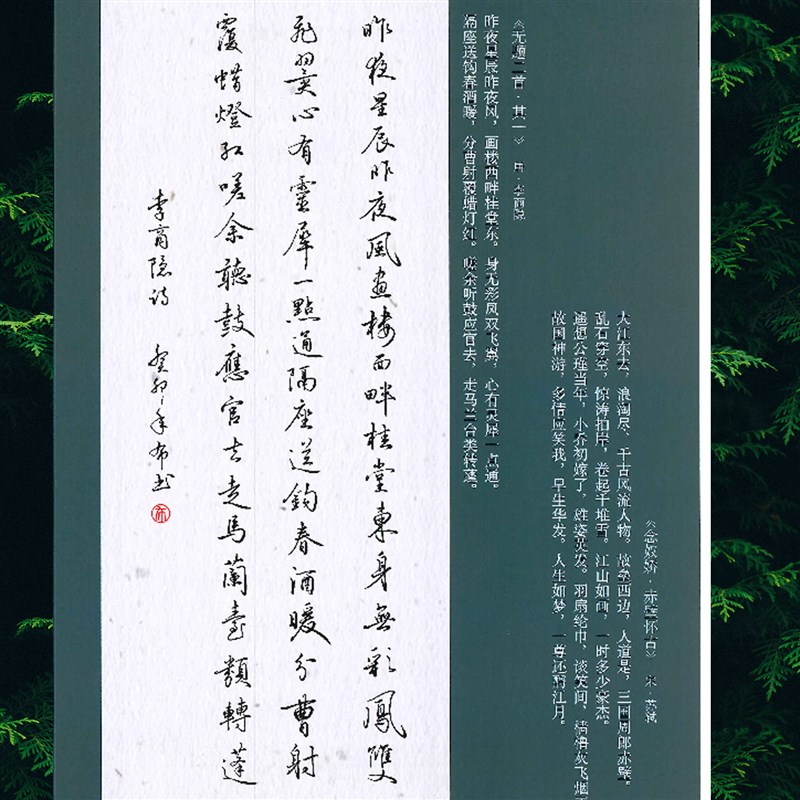 《念奴娇·赤壁怀古》 宋·苏轼
大江东去，浪淘尽、千古风流人物。故垒西边，人道是，三国周郎赤壁。
乱石穿空，惊涛拍岸，卷起千堆雪。江山如画，一时多少豪杰。
遥想公瑾当年，小乔初嫁了，雄姿英发。羽扇纶巾，谈笑间，樯橹灰飞烟
故国神游，多情应笑我，早生华发。人生如梦，一尊还酹江月。
《无题二首·其一》 唐·李商隐
昨夜星辰昨夜风，画楼西畔桂堂东。身无彩凤双飞翼，心有灵犀一点通。
隔座送钩春酒暖，分曹射覆蜡灯红。嗟余听鼓应官去，走马兰台类转蓬。
昨夜星辰昨夜風畫樓西畔桂堂東身無彩鳳雙
飛翼心有靈犀一點通隔座送鈎春酒暖分曹射
覆蜡燈紅嗟余聽鼓應官去走馬蘭臺類轉蓬
李商隱詩 癸卯年布书